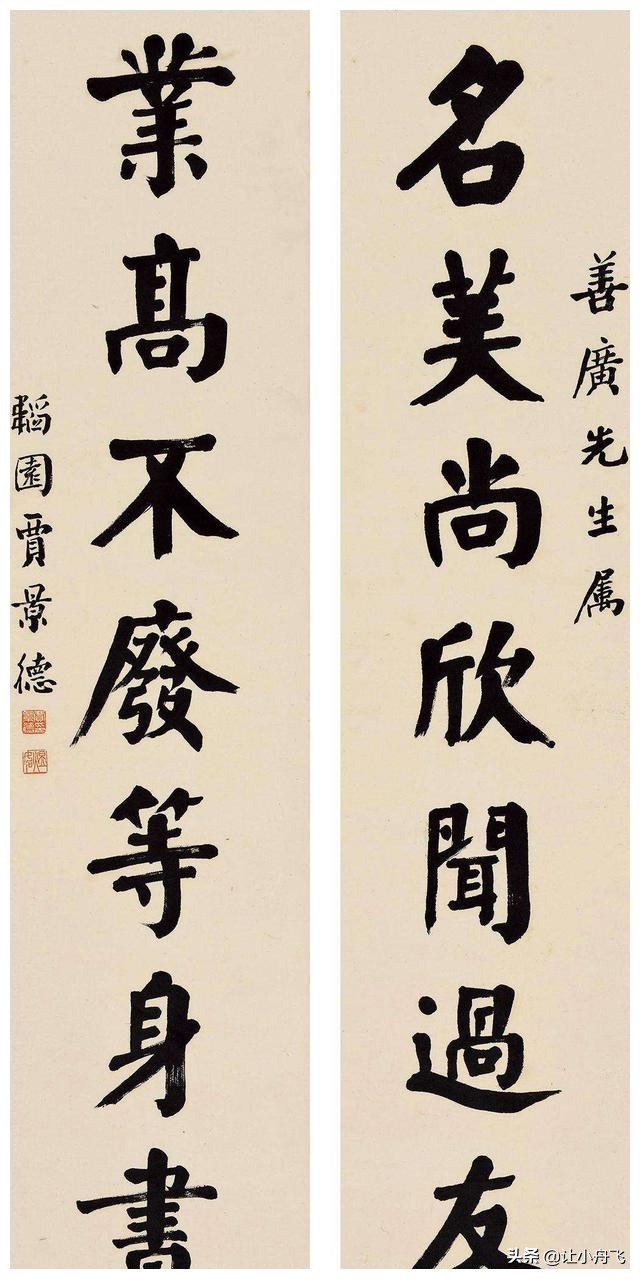 善廣先生属
名美尚欣聞過友
業高不廢等身書
韜園賈景德
头条 @让小舟飞